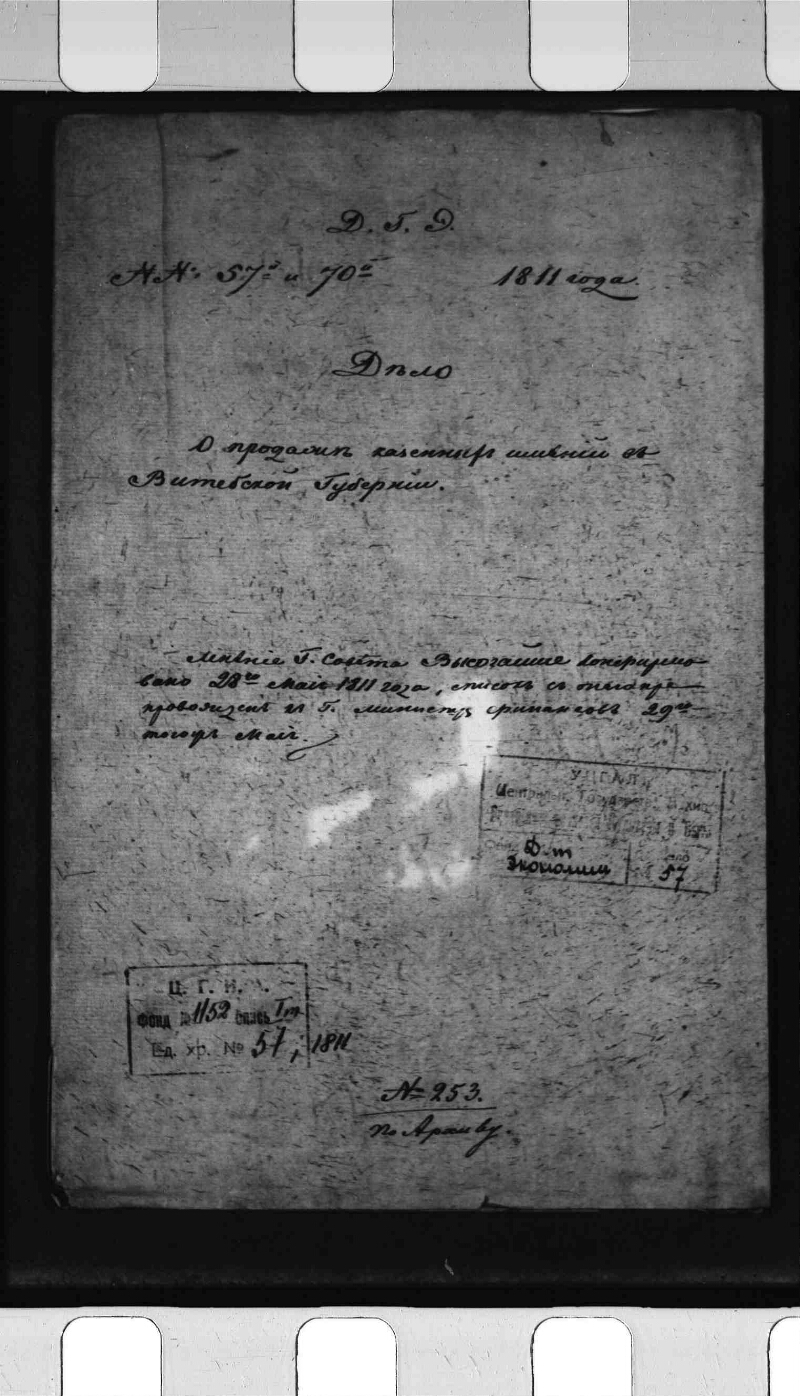 Д. Г. Э.
NNо 57й и 70й 1811 года.
Дѣло
О продажѣ казенныхъ имѣній въ
Витебской Губерніи.
Мнѣніе Г. Совѣта Высочайше конфирмо-
вано 28го Маія 1811 года, списокъ съ онаго пре-
провожденъ къ Г. Министру финансовъ 29го
тогожъ Маія.
Ц. Г. И. А.
Фонд № 1152 Опись I т.
Ед. хр. № 57, 1811
Д-т
Экономии 57
№ 253.
по Архиву.